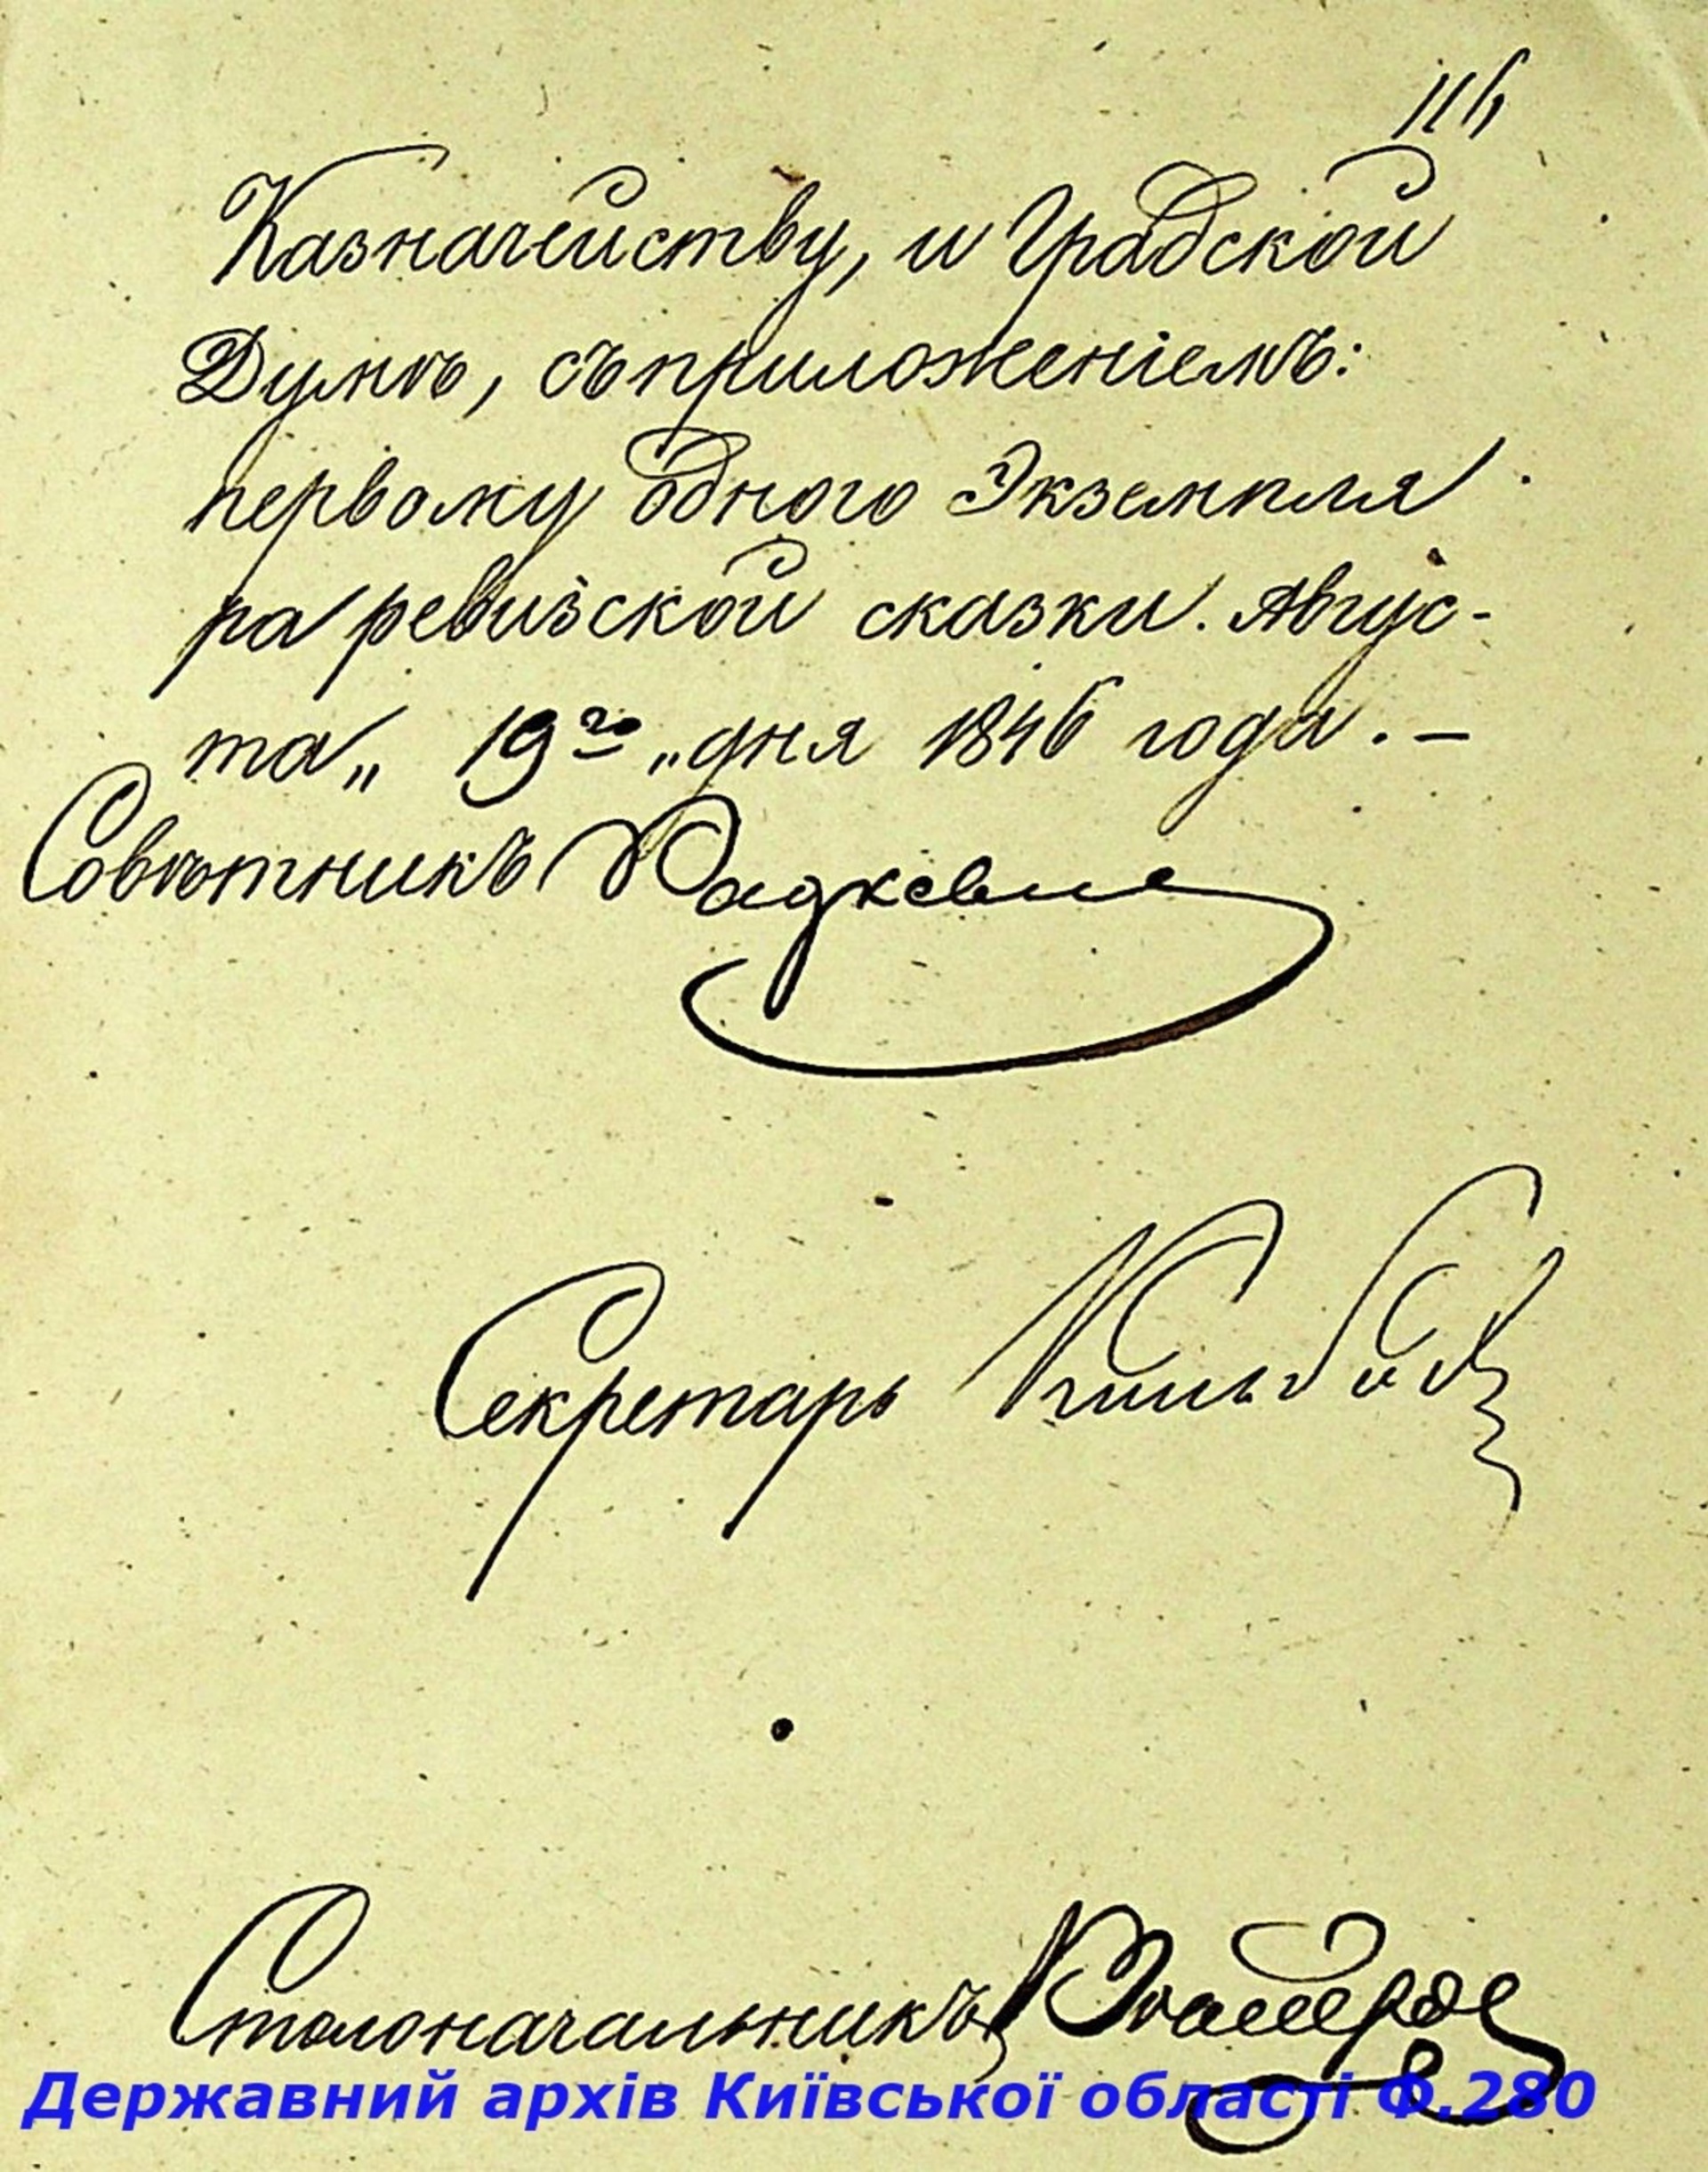 116
Казначейству, и Градской
Думѣ, съ приложеніемъ:
первому одного Экземпля
ра ревизской сказки. Авгус-
та„ 19го „дня 1846 года. —
Совѣтникъ Радкевич
Секретарь
Столоначальникъ
Державний архів Київської області Ф.280